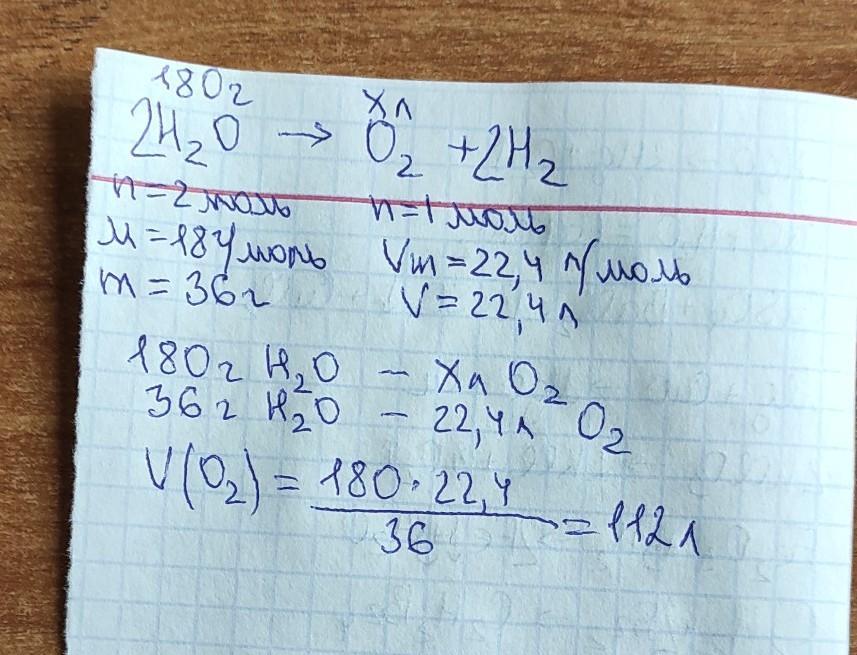 180г хл
2H₂O → O₂ + 2H₂
n = 2 моль n = 1 моль
M = 18 г/моль Vm = 22,4 л/моль
m = 36 г V = 22,4 л
180 г H₂O – хл O₂
36 г H₂O – 22,4 л O₂
V(O₂) = 180 · 22,4
36 = 112 л